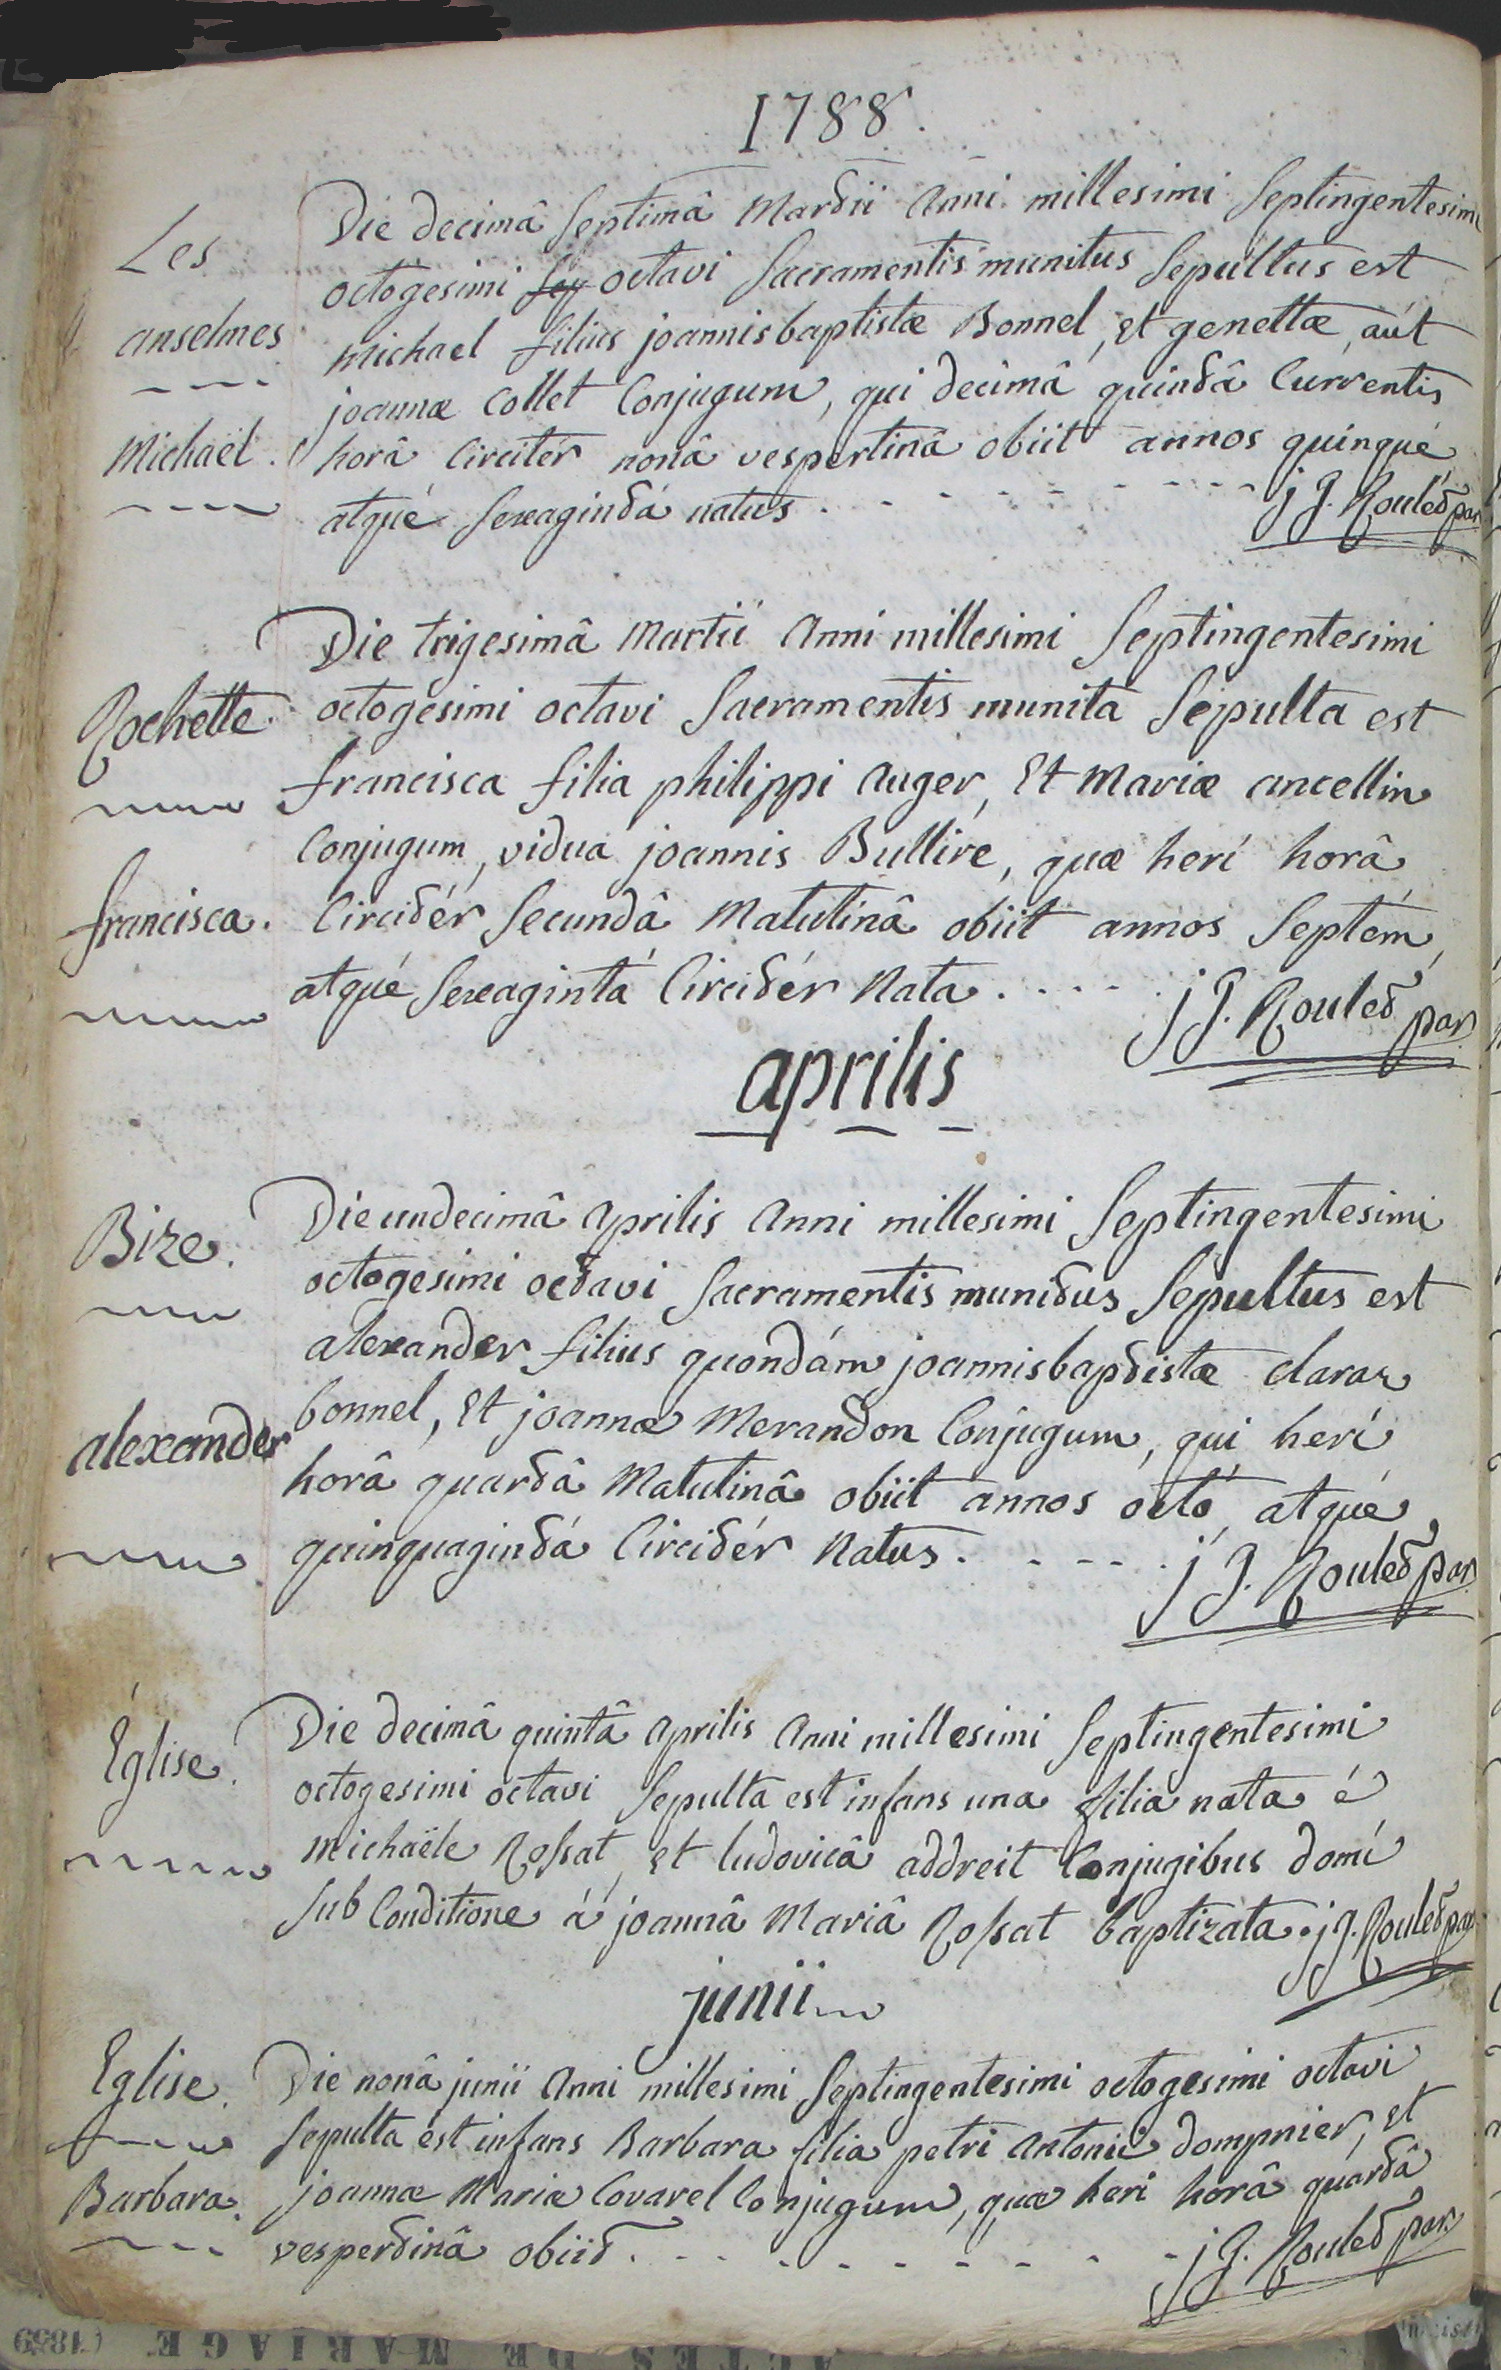 1788.
Les
anselmes
Michaël.
Die decimâ septimâ Martii anni millesimi septingentesimi
octogesimi sep octavi sacramentis munitus sepultus est
michael filius joannisbaptistæ Bonnel, et genettæ, aút
joannæ collet conjugum, qui decimâ quintâ currentis
horâ circitér nonâ vespertinâ obiit annos quinqué
atqué sexagintá natus. j J. Roulet par
Rochette.
francisca.
Die trigesimâ Martii anni millesimi septingentesimi
octogesimi octavi sacramentis munita sepulta est
francisca filia philippi auger, et Mariæ ancellin
conjugum, vidua joannis Bullire, quæ herí horâ
circitér secundâ Matutinâ obiit annos septém,
atqué sexagintá circitér nata. j J. Roulet par
aprilis
Bize.
alexander
Die undecimâ aprilis anni millesimi septingentesimi
octogesimi octavi sacramentis munitus sepultus est
alexander filius quondám joannisbaptistæ claraz
bonnel, et joannæ Merandon conjugum, qui herí
horâ quartâ Matutinâ obiit annos octó atqué
quinquagintá circitér natus. j J. Roulet par
Église.
Die decimâ quintâ aprilis anni millesimi septingentesimi
octogesimi octavi sepulta est infans una filia nata é
michaële Rossat, et ludovicâ addreit conjugibus domí
sub conditione á joannâ Mariâ Rossat baptizata. j J. Roulet par
junii
Eglise.
Barbara.
Die nonâ junii anni millesimi septingentesimi octogesimi octavi
sepulta est infans Barbara filia petri antonii dompnier, et
joannæ Mariæ Covarel conjugum, quæ heri horâ quartâ
vespertinâ obiit. j J. Roulet par
(1859
ACTES DE MARIAGE